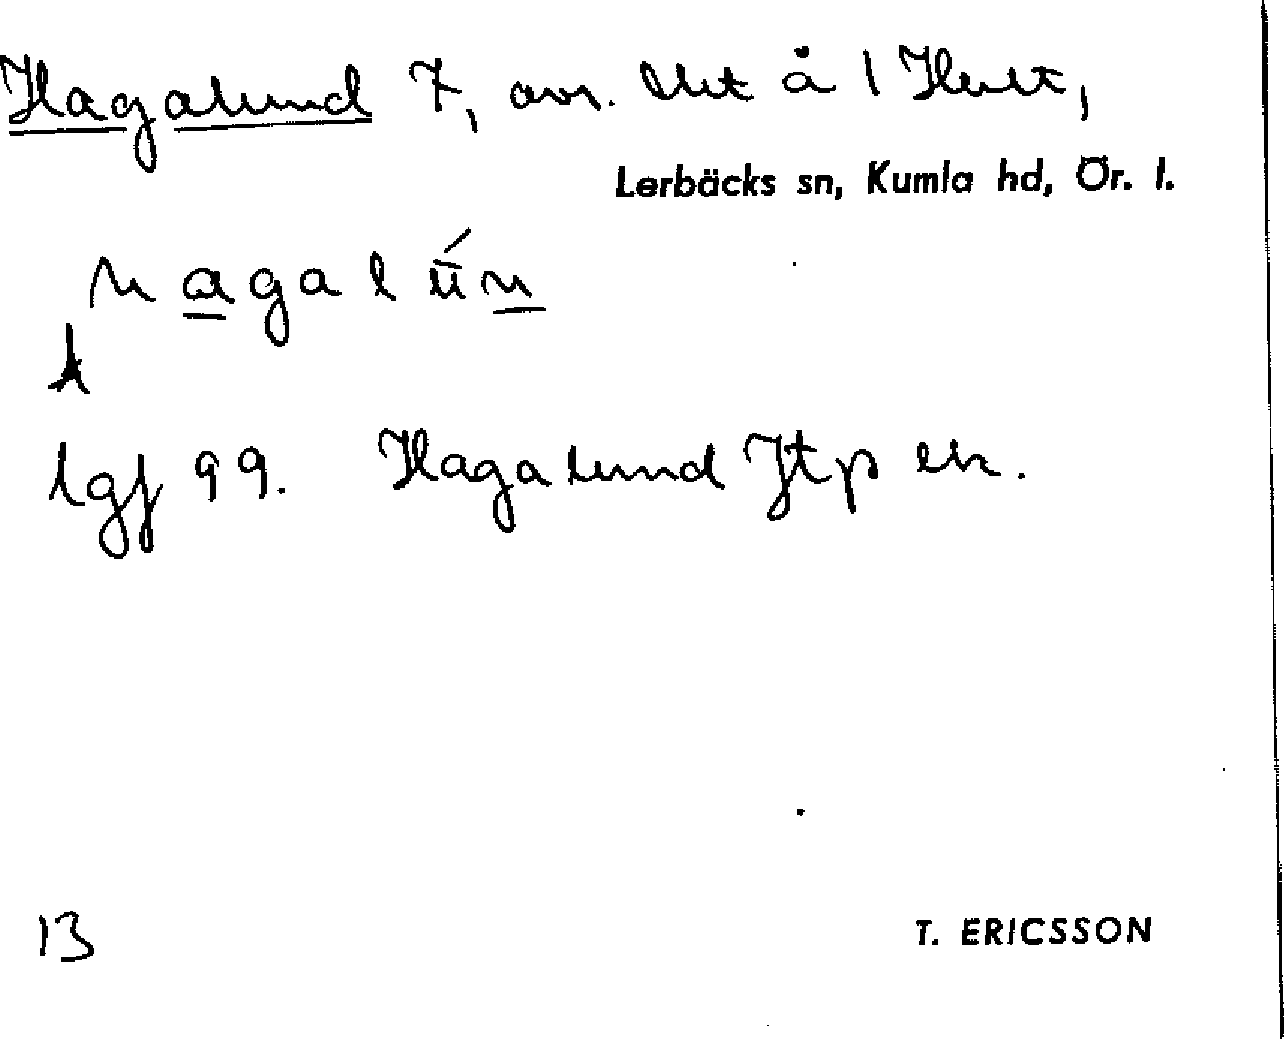 Hagalund T, avs. lht å 1 Hult,
Lerbäcks sn, Kumla hd, Ör. l.
hagalún
lgf 99. Hagalund Jtp ek.
13
T. ERICSSON